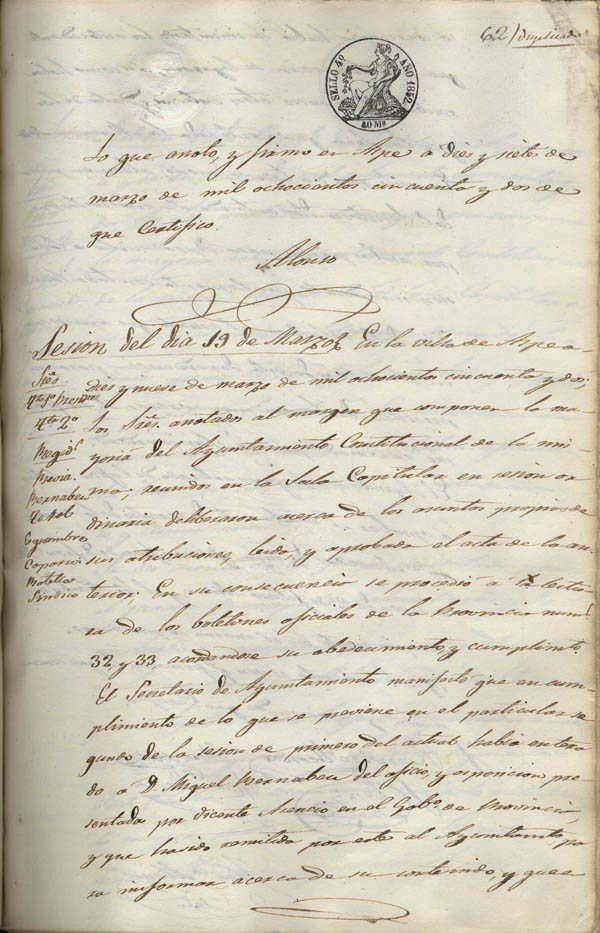 62/duplicado
SELLO 4º AÑO 1852
40 Ms
Lo que anoto, y firmo en Aspe a diez y siete de
marzo de mil ochocientos cincuenta y dos de
que Certifico.
Alonso
Sesion del dia 19 de Marzo En la villa de Aspe a
diez y nueve de marzo de mil ochocientos cincuenta y dos;
los Sres. anotados al margen que componen la ma-
yoria del Ayuntamiento Constitucional de la mis-
ma; reunidos en la Sala Capitular en sesion or
dinaria deliberaron acerca de los asuntos propios de
sus atribuciones, leida, y aprobada el acta de la an-
terior; En su consecuencia se procedió a la lectu-
ra de los boletines oficiales de la Provincia num.s
32, y 33 acordandose su obedecimiento, y cumplimto.
El Secretario de Ayuntamiento manifestó que en cum-
plimiento de lo que se previene en el particular se
gundo de la sesion de primero del actual habia entera
do a D. Miguel Bernabeu del oficio, y esposicion pre
sentada por Vicente Asencio en el Gobº. de Provincia,
y que ha sido remitida por este al Ayuntamto. pa
ra informar acerca de su contenido, y que a
Sres.
Tte. 1º Presdte.
Tte. 2º
Regid.s
Bernabeu
Caparros
Botella
Sindico